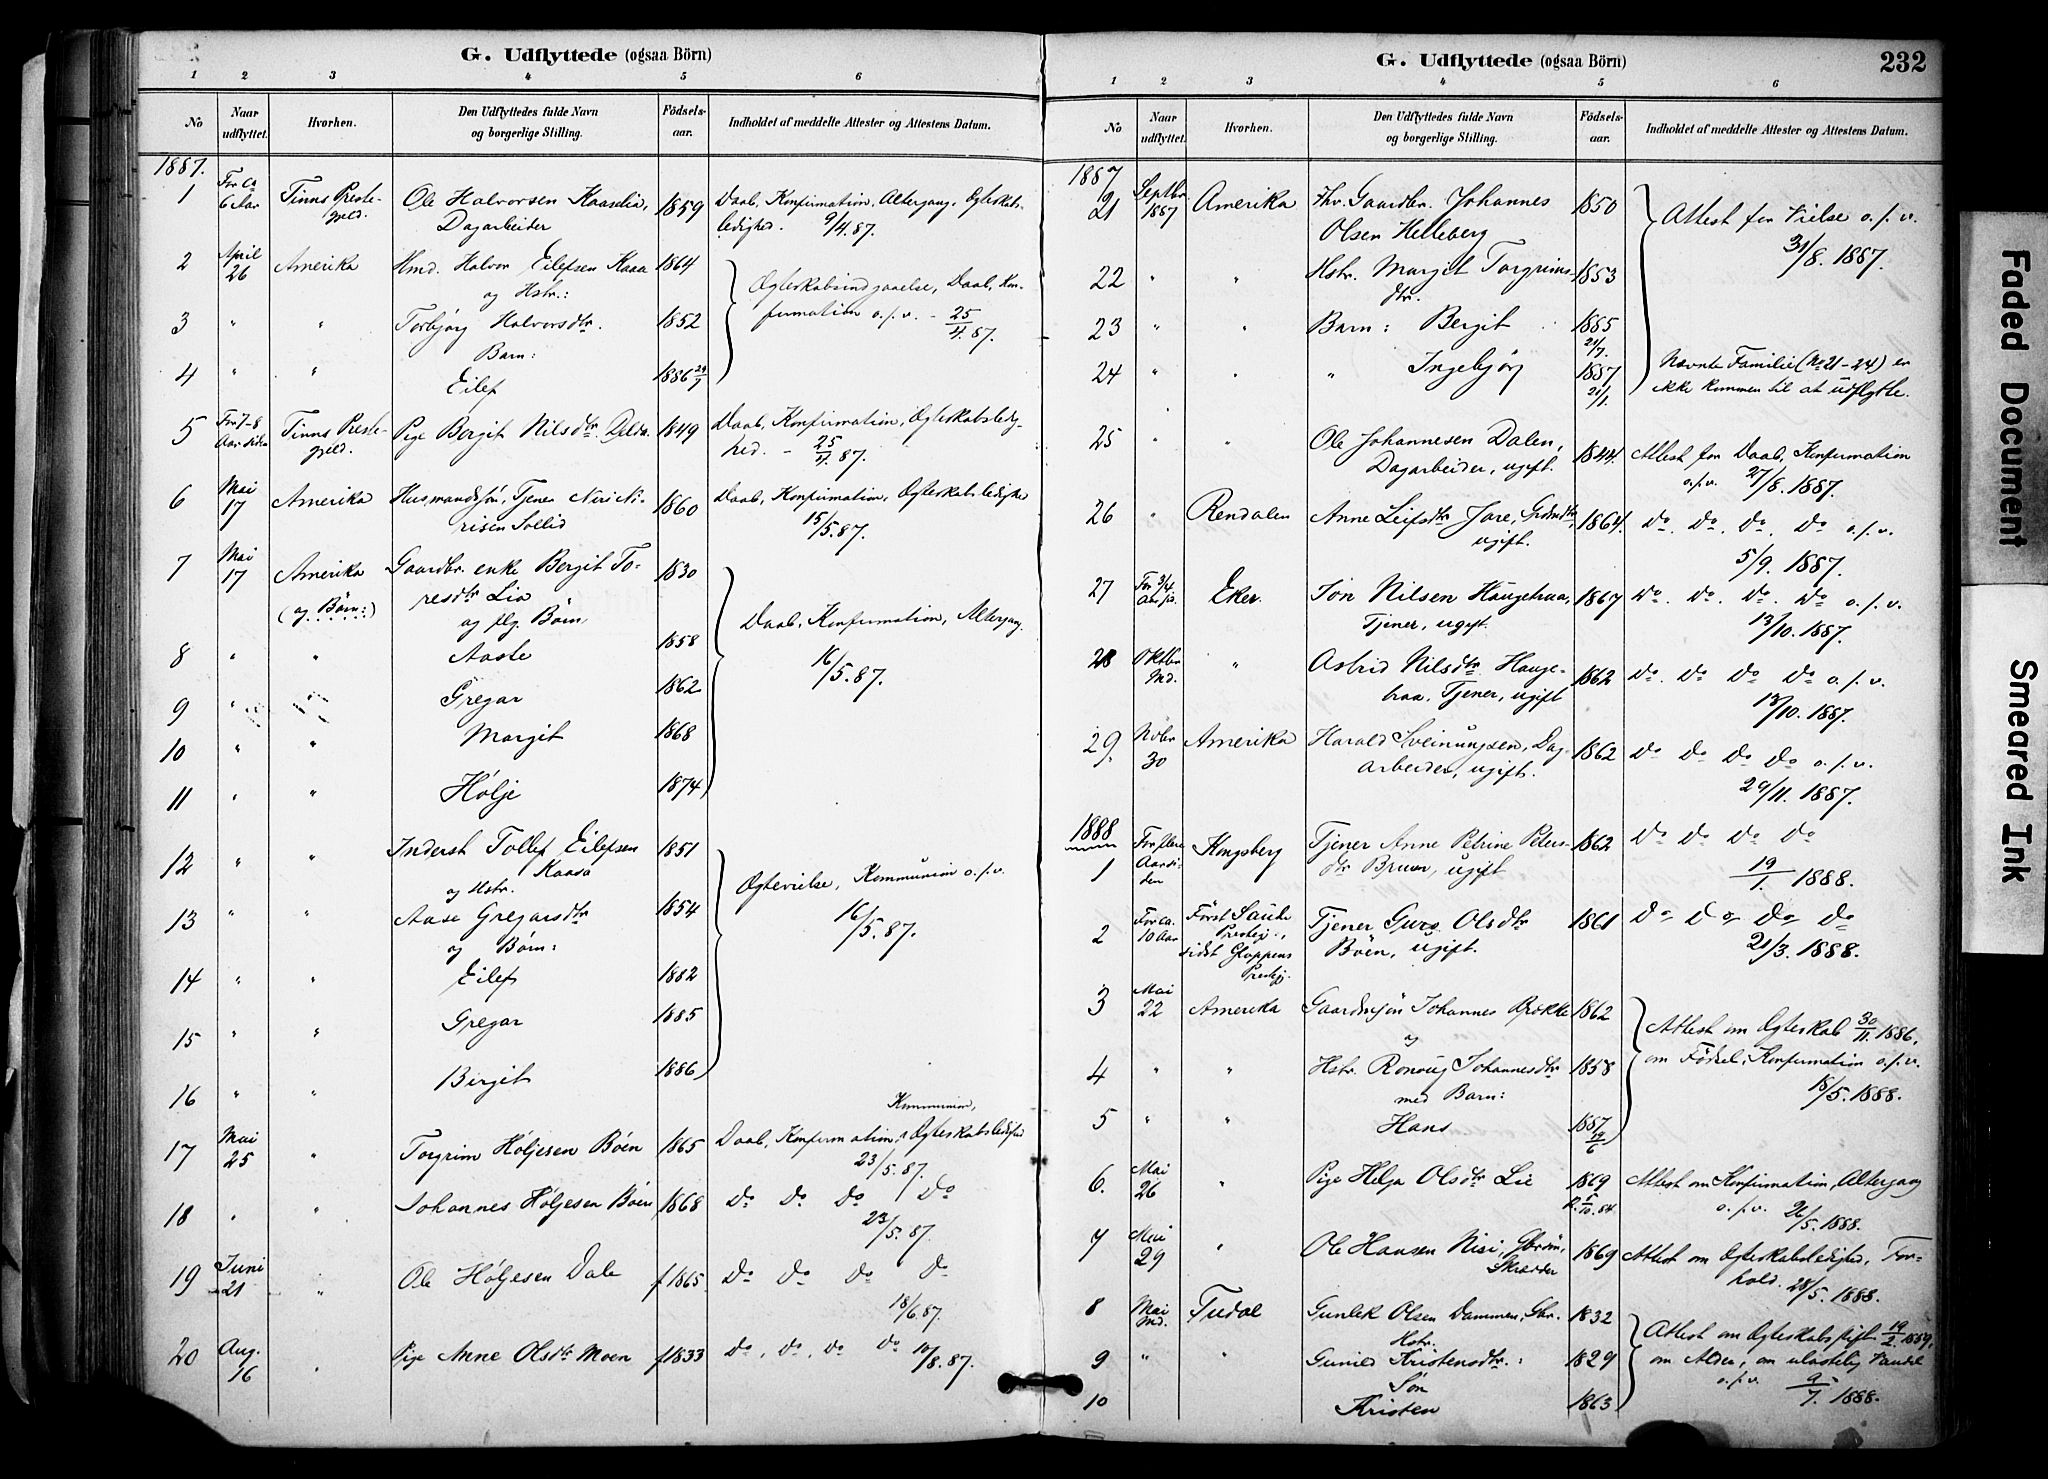 G. Udflyttede (ogsaa Börn)
1 2 3 4 5 6
No
Naar udflyttet.
Hvorhen.
Den Udflyttedes fulde Navn og borgerlige Stilling.
Födsels-aar.
Indholdet af meddelte Attester og Attestens Datum.
1887.
1 For ca 6 Aar Tinns Preste- Ole Halvorsen Kaaselia, 1859 Daab, Konfirmation, Altergang, Egteskabs-
gjeld. Dagarbeider ledighed. 9/4.87.
2 April 26 Amerika Hmd. Halvor Eilefsen Kaasa 1864 Egteskabsindgaaelse, Daab, Kon-
og Hstr.: firmation o.s.v. - 25/4.87.
3 " " Torbjørg Halvorsdtr. 1852
Barn:
4 " " Eilef 1886 29/7
5 For 7-8 Aar siden Tinns Preste- Pige Bergit Nilsdtr. 1849 Daab, Konfirmation, Egteskabsledig-
gjeld. hed. - 25/4.87.
6 Mai 17 Amerika Husmandssön, Tjener Niri Ni- 1860 Daab, Konfirmation, Egteskabsledighed
risen Sollid 15/5.87.
7 Mai 17 Amerika Gaardbr. enke Bergit To- 1830
(og Børn:) resdtr Lia
og flg. Børn Daab, Konfirmation, Altergang.
8 " " Aaste 1858 16/5.87.
9 " " Gregar 1862
10 " " Margit 1868
11 " " Hölje 1874
12 " " Inderst Tollef Eilefsen 1851
Kaasa
og Hstr. Egtevielse, Kommunion o.s.v.
13 " " Aase Gregarsdtr 1854 16/5.87.
og Børn:
14 " " Eilef 1882
15 " " Gregar 1885
16 " " Birgit 1886
Kommunion,
17 Mai 25 " Torgrim Höljesen Böen 1865 Daab, Konfirmation, Egteskabsledighed
23/5.87.
18 " " Johannes Höljesen Böen 1868 Do Do Do Do
23/5.87.
19 Juni 21 " Ole Höljesen Dale f 1865 Do Do Do Do
18/6.87.
20 Aug. 16 " Pige Anne Olsdtr Moen f 1833 Do, Do, Do Do 10/8.87.
G. Udflyttede (ogsaa Börn)
232
1 2 3 4 5 6
No
Naar udflyttet.
Hvorhen.
Den Udflyttedes fulde Navn og borgerlige Stilling.
Födsels-aar.
Indholdet af meddelte Attester og Attestens Datum.
1887
21 Septbr 1887 Amerika Fhv. Gaardbr. Johannes 1850 Attest for Vielse o.s.v.
Olsen Helleberg 31/8. 1887.
22 " " Hstr. Margit Torgrims- 1853
dtr.
23 " " Barn: Bergit 1885
21/7.
24 " " " Ingebjörg 1887 Nævnte Familie (No 21-24) er
21/1. ikke kommen til at udflytte.
25 " " Ole Johannesen Dalen, 1844. Attest for Daab, Konfirmation
Dagarbeider, ugift. o.s.v. 27/8. 1887.
26 " Rendalen Anne Leifsdtr Jore, Grdmdtr, 1864. Do Do. Do. Do o.s.v.
ugift. 5/9. 1887.
27 For 3/4 Aar s. Eker. Jon Nilsen Haugehaa, 1867 Do. Do. Do. Do o.s.v.
Tjener, ugift. 13/10. 1887.
28 Oktbr Md. " Astrid Nilsdtr Hauge- 1862 Do. Do Do Do o.s.v.
haa, Tjener, ugift 13/10. 1887.
29. Novbr 30 Amerika Harald Sveinungsen, Dag- 1862 Do Do Do Do o.s.v.
arbeider, ugift. 29/11. 1887.
1888
1 For flere Aar siden Kongsberg Tjener Anne Petrine Peters- 1862 Do Do Do Do
dtr Bruun, ugift 19/1. 1888.
2 For ca. 10 Aar Först Saude Prestegj., Tjener Guro Olsdtr 1861 Do Do Do Do
sidst Gloppens Prestegj. Böen, ugift. 21/3. 1888.
3 Mai 22 Amerika Gaardmsön Johannes Brokke 1862 Attest om Egteskab 30/11. 1886,
og om Födsel, Konfirmation o.s.v.
4 " " Hstr. Ronoug Johannesdtr 1858 18/5. 1888.
med Barn:
5 " " Hans 1887
19/6
6. Mai 26 " Pige Helga Olsdtr Lie 1869 Attest om Konfirmation, Altergang
k. 5/10. 84 o.s.v. 26/5. 1888.
7 Mai 29 " Ole Hansen Nisi, Gbrsön, 1869 Attest om Egteskabsledighed, For-
Skrædder hold. 28/5. 1888.
8 Mai Md. Tudal Gunlek Olsen Dammen, Gbr. 1832 Attest om Egteskabsstift. 19/2. 1859,
Hstr. om Alder, om ulastelig Vandel
9 " " Gunild Kristensdtr.: 1829 o.s.v. 9/7. 1888.
Søn
10 Kristen 1863
Faded Document
Smeared Ink